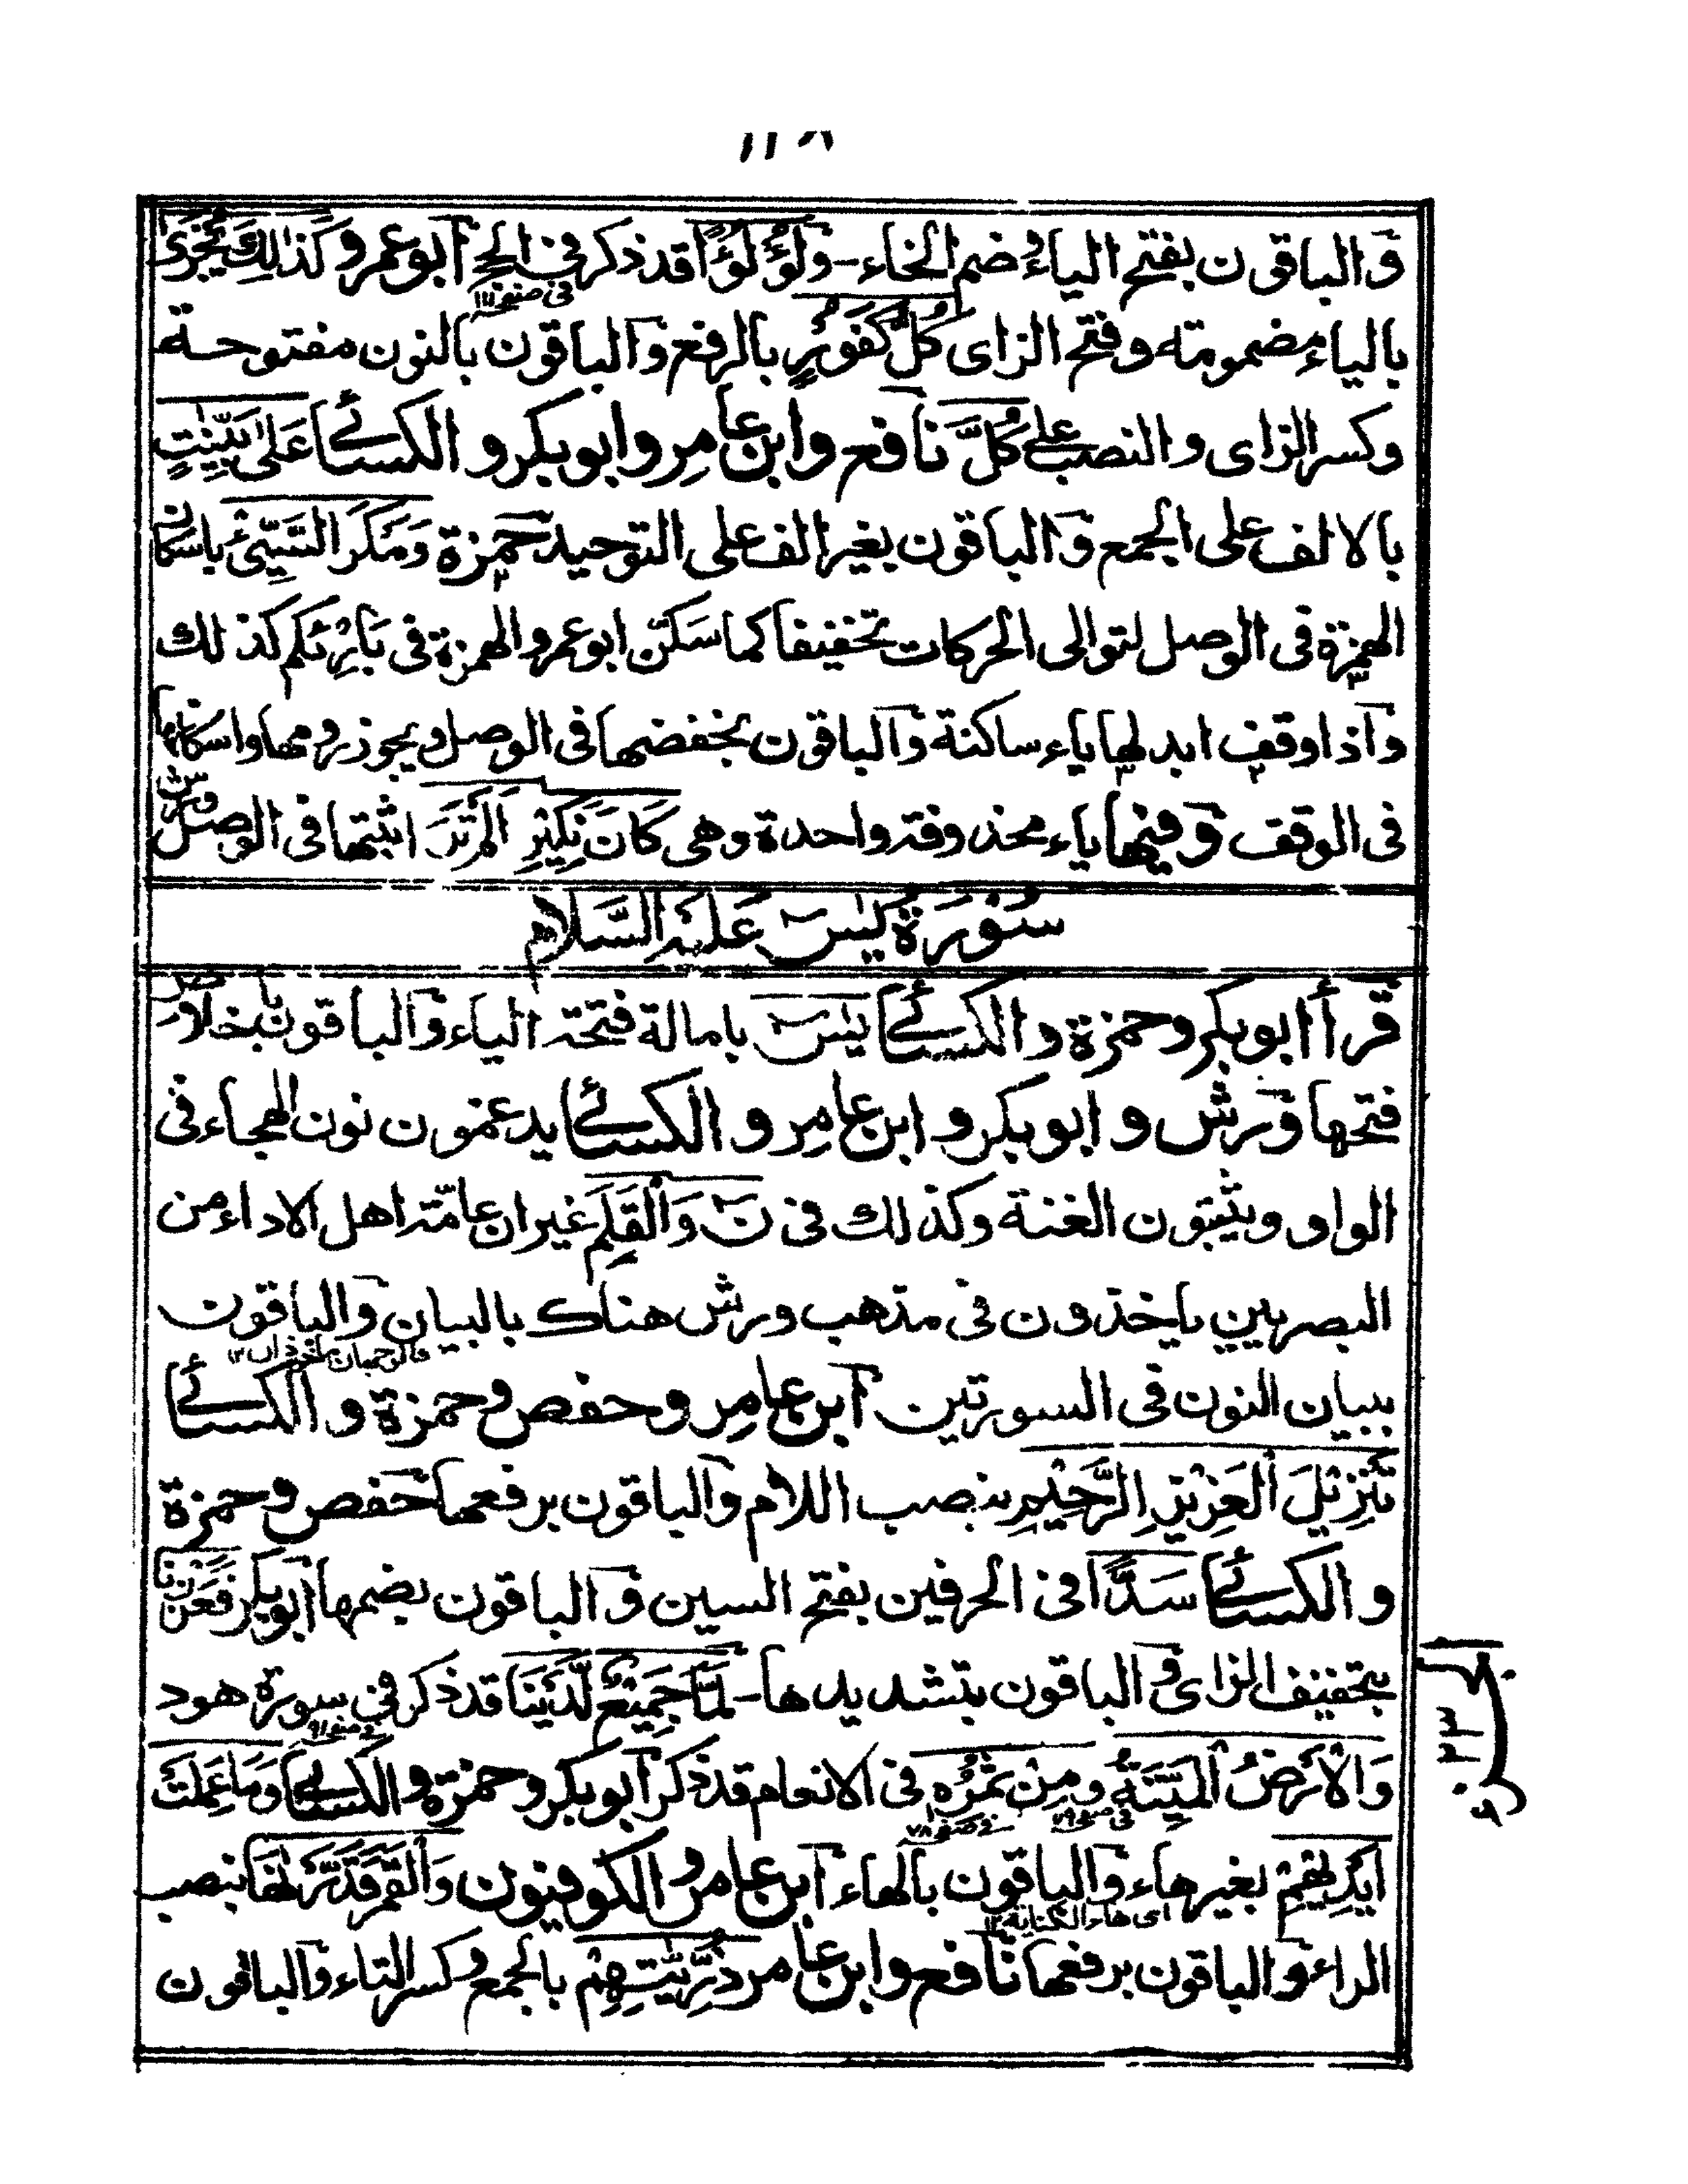 والباقون بفتح الياء وضم الخاء - ولؤلؤًا قد ذكر في الحج ابو عمرو كذلك يُجْزٰى
في صفحة
بالياء مضمومة وفتح الزاى كُلُّ كَفُوْرٍ بالرفع والباقون بالنون مفتوحة
وكسر الزاى والنصب على كُلَّ نافع وابن عامر وابو بكر والكسائے عَلٰى بَيِّنٰتٍ
بالالف على الجمع والباقون بغير الف على التوحيد حمزة وَمَكْرَ السَّيِّئْ باسكان
الهمزة فى الوصل لتوالى الحركات تخفيفا كما سكّن ابو عمرو الهمزة فى بَارِئْكُم كذلك
واذا وقف ابدلها ياء ساكنة والباقون بخفضها فى الوصل ويجوز رومها واسكانها
فى الوقف وفيها ياء محذوفة واحدة وهى كَانَ نَكِيْرِ اَلَمْ تَرَ اثبتها فى الوصل ورش
سُوْرَةُ يٰسٓ عَلَيْهِ السَّلَام
قرأ ابو بكر وحمزة والكسائے يٰسٓ بامالة فتحة الياء والباقون باخلاص
فتحها ورش وابو بكر وابن عامر والكسائے يدغمون نون الهجاء فى
الواو ويثبتون الغنة وكذلك فى نٓ وَالْقَلَمِ غير ان عامّة اهل الاداء من
البصريين ياخذون فى مذهب ورش هناك بالبيان والباقون
ببيان النون فى السورتين ابن عامر وحفص وحمزة والكسائے
تَنْزِيْلَ الْعَزِيْزِ الرَّحِيْمِ بنصب اللام والباقون برفعها حفص وحمزة
والكسائے سَدًّا فى الحرفين بفتح السين والباقون بضمها ابو بكر فَعَزَزْنَا
بتخفيف الزاى والباقون بتشديدها - لَمَّا جَمِيْعٌ لَّدَيْنَا قد ذكر في سورة هود
في صفحة ٩١
وَالْاَرْضُ الْمَيْتَةُ ومِنْ ثَمَرِهٖ فى الانعام قد ذكر ابو بكر وحمزة والكسائے وَمَا عَمِلَتْ
في صفحة ٧٩ في صفحة ٧٨
اَيْدِيْهِمْ بغير هاء والباقون بالهاء ابن عامر والكوفيون وَالْقَمَرَ قَدَّرْنٰهُ بنصب
اى هاء الكناية ١٢
الراء والباقون برفعها نافع وابن عامر ذُرِّيّٰتِهِمْ بالجمع وكسر التاء والباقون